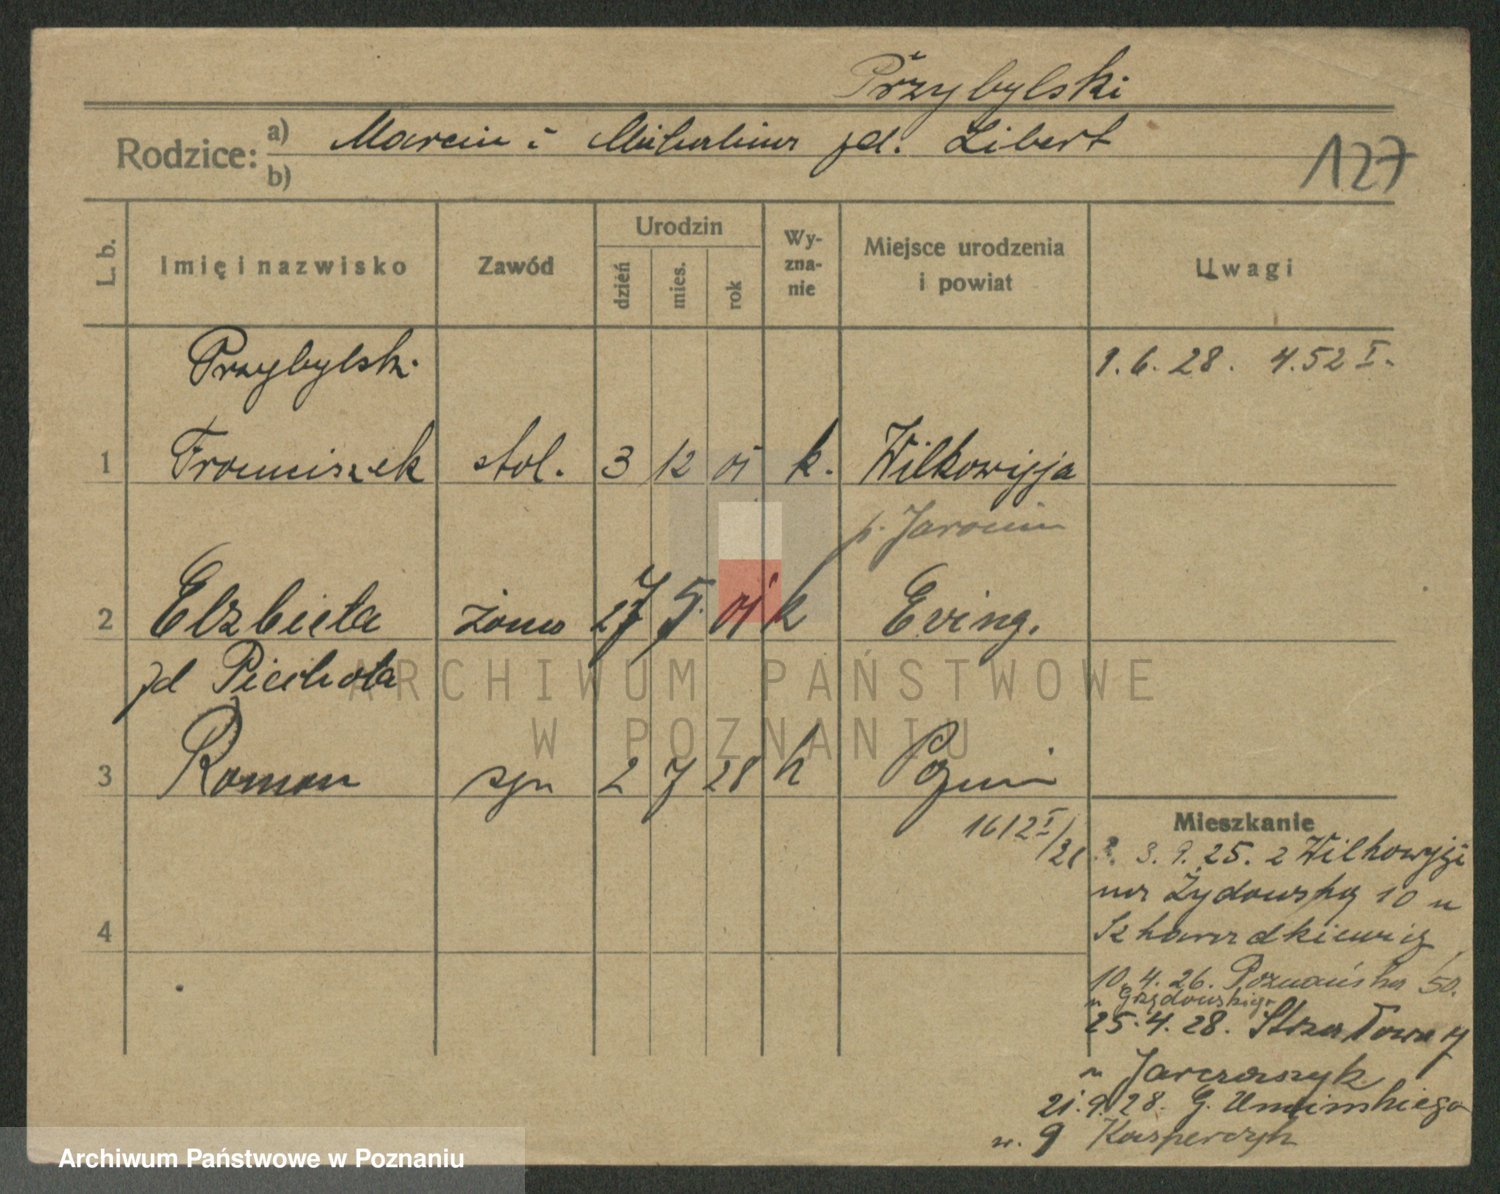 Przybylski
Rodzice: a) Marcin i Michalina zd. Libert
b)
127
L. b.
Imię i nazwisko
Zawód
Urodzin
dzień
mies.
rok
Wy-
zna-
nie
Miejsce urodzenia
i powiat
Uwagi
Przybylski
9.6.28. 4.52 I.
1 Franciszek stol. 3 12 01 k. Wilkowyja
p. Jarocin
2 Elżbieta żona 27 5. 01 k Eving.
zd Piechota
3 Roman syn 2 7 28 k Pozn
1612 I/31
Mieszkanie
3.9.25. z Wilkowyji
na Żydowską 10 u
10.4.26. Poznańska 50.
25.4.28. Strzałowa
u Jarczaszyk
21.9.28. G. Umińskiego
9 Kasperczyk
4
ARCHIWUM PAŃSTWOWE
W POZNANIU
Archiwum Państwowe w Poznaniu